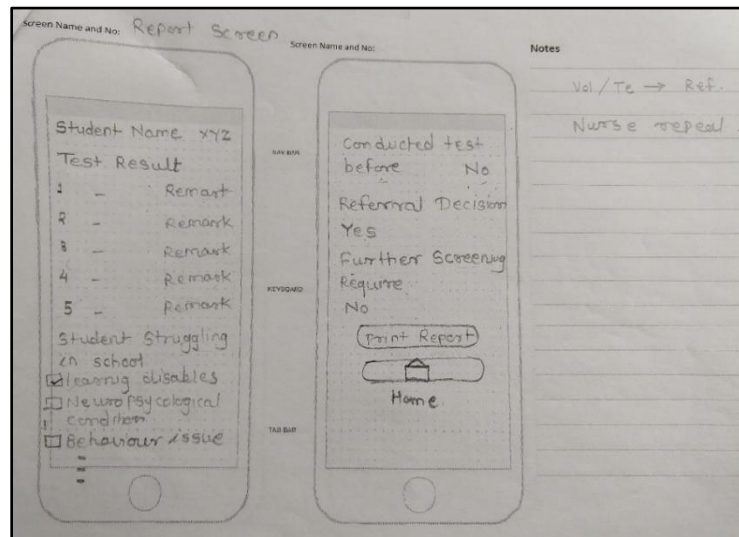 Screen Name and No: Report Screen
Student Name xyz
Test Result
1 - Remark
2 - Remark
3 - Remark
4 - Remark
5 - Remark
Student Struggling
in school
learnig disables
Neuropsycological
condition
Behaviour issue
NAV BAR
KEYBOARD
TAB BAR
Screen Name and No:
Conducted test
before No
Referral Decision
Yes
Further Screening
Require
No
Print Report
Home
Notes
Vol/Te → Ref.
Nurse repeal